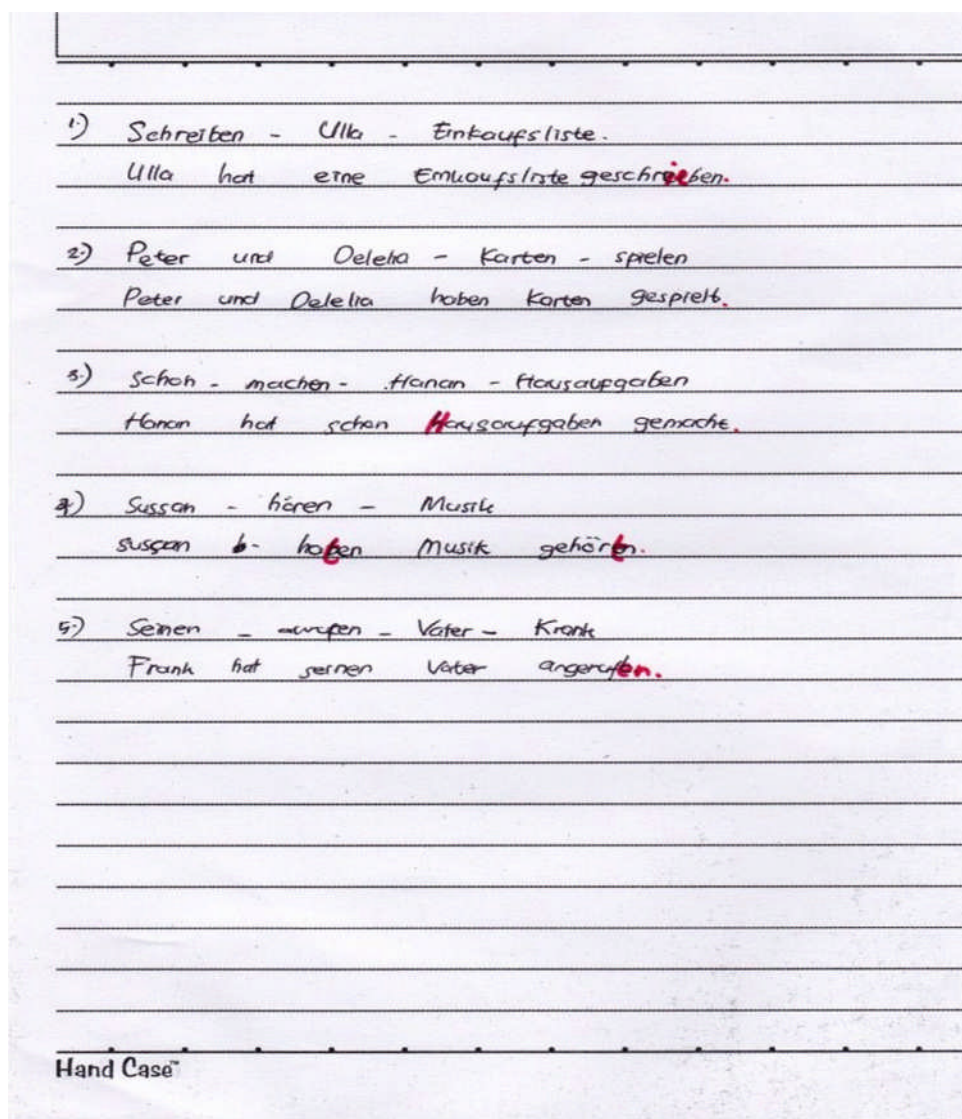 1.) Schreiben - Ulla - Einkaufsliste.
Ulla hat eine Einkaufsliste geschrieben.
2.) Peter und Oelelia - Karten - spielen
Peter und Oelelia haben Karten gespielt.
3.) Schon - machen - Hanan - Hausaufgaben
Hanan hat schon Hausaufgaben gemacht.
4.) Sussan - hören - Musik
Sussan hat Musik gehört.
5.) Seinen - anrufen - Vater - Krank
Frank hat seinen Vater angerufen.
Hand Case™